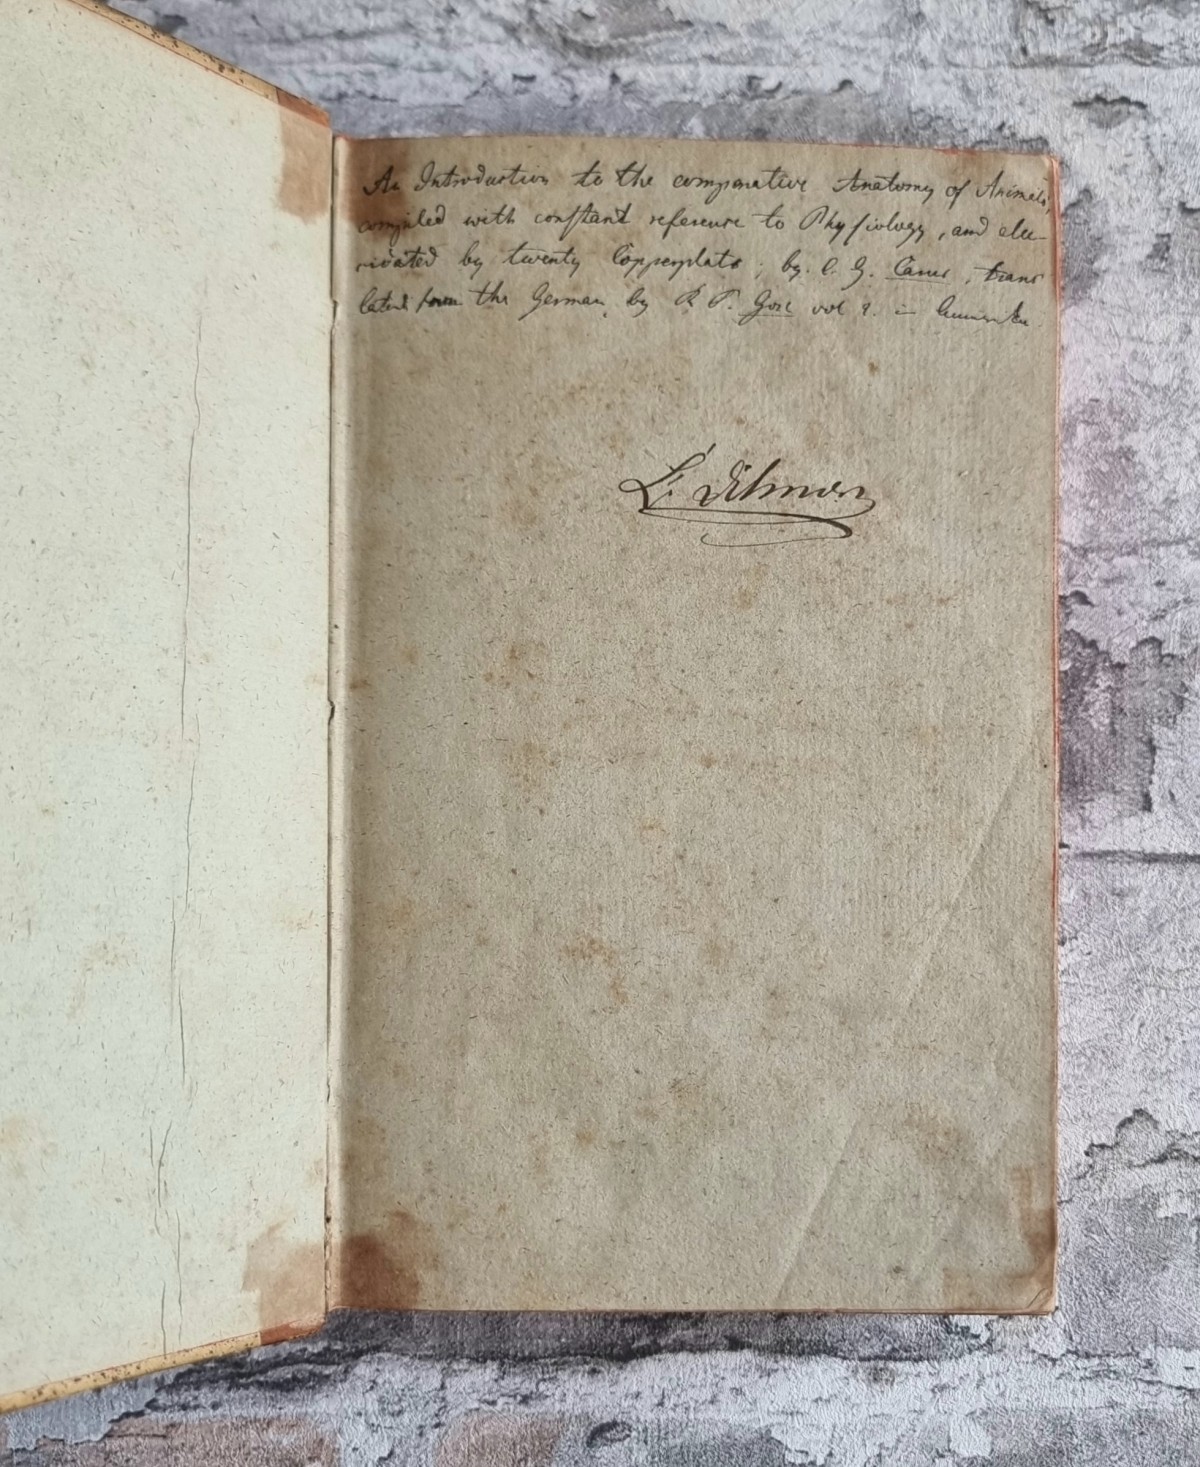 An Introduction to the comparative Anatomy of Animals,
compiled with conſtant reference to Phyſiology, and elu-
cidated by twenty Copperplats; by. C. G. Carus, trans
lated from the German by R. T. Gore vol 2. in
L. Dilmon